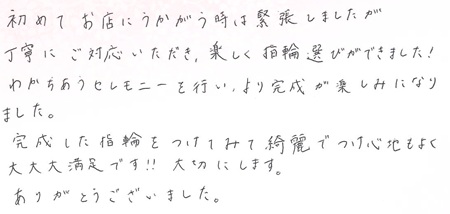 初めてお店にうかがう時は緊張しましたが
丁寧にご対応いただき、楽しく指輪選びができました!
わかちあうセレモニーを行い、より完成が楽しみになり
ました。
完成した指輪をつけてみて綺麗でつけ心地もよく
大大大満足です!! 大切にします。
ありがとうございました。